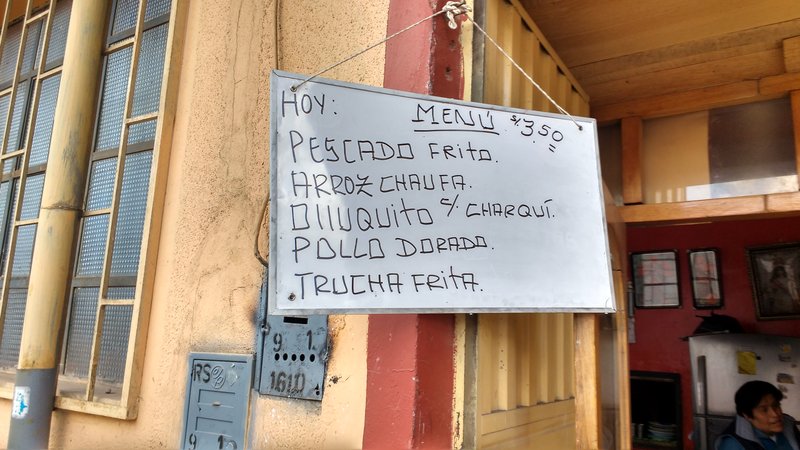 HOY: MENÚ S/. 3.50
PESCADO FRITO.
ARROZ CHAUFA.
OllUQUITO C/ CHARQUÍ.
POLLO DORADO.
TRUCHA FRITA.
9 1
1610
RS
9 1